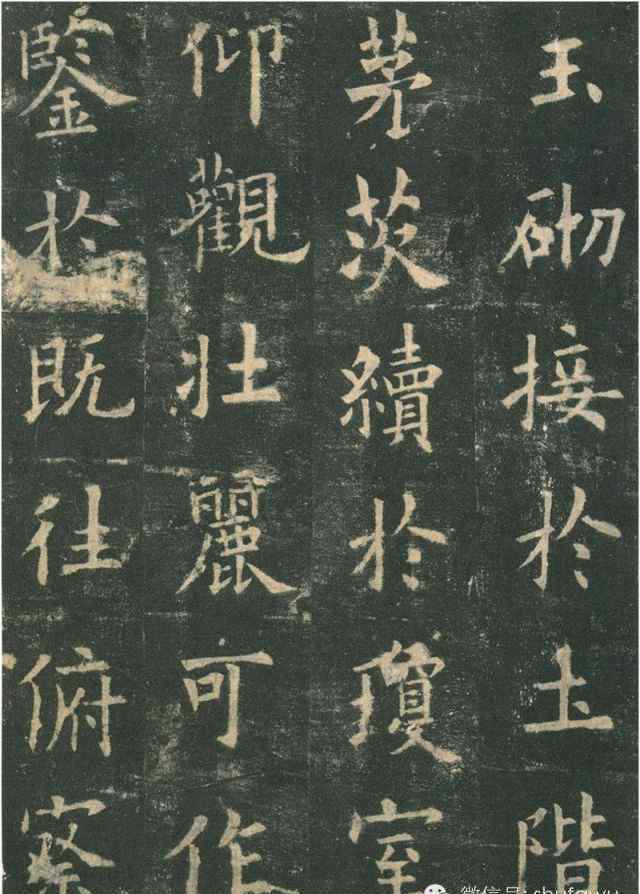 玉砌接於土階
茅茨續於瓊室
仰觀壯麗可作
鑒於既往俯察
微信号: shufawu